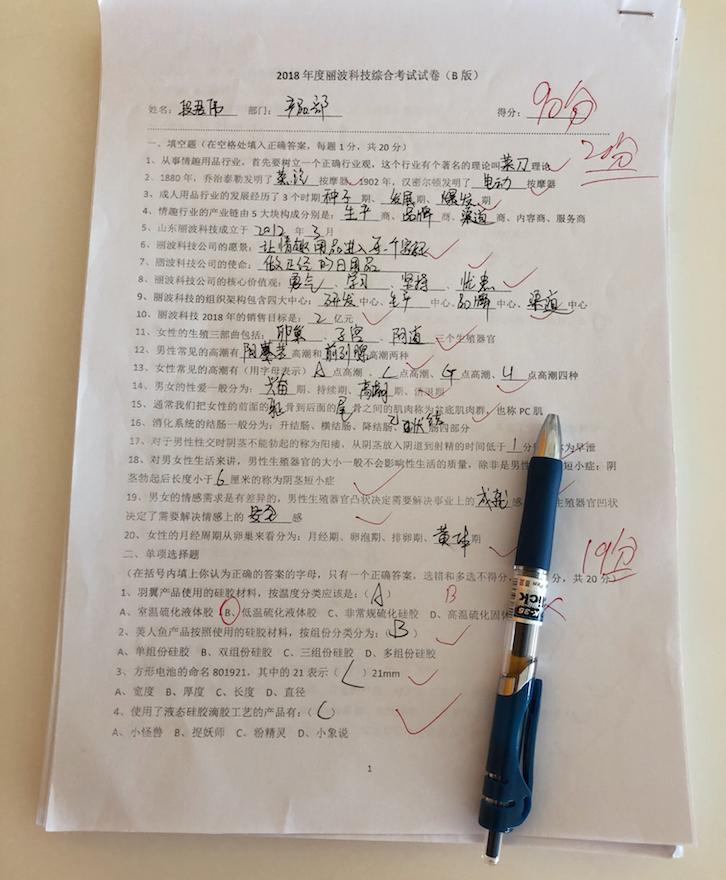 2018 年度丽波科技综合考试试卷（B 版）
姓名： 部门：市场部 得分：90分
一、填空题（在空格处填入正确答案，每题 1 分，共 20 分） 20分
1、从事情趣用品行业，首先要树立一个正确行业观，这个行业有个著名的理论叫菜刀理论
2、1880 年，乔治泰勒发明了蒸汽按摩器，1902 年，汉密尔顿发明了电动按摩器
3、成人用品行业的发展经历了 3 个时期种子期、发展期、爆发期
4、情趣行业的产业链由 5 大块构成分别是：生产商、品牌商、渠道商、内容商、服务商
5、山东丽波科技成立于 2012 年 3 月
6、丽波科技公司的愿景：让情趣用品进入每一个家庭
7、丽波科技公司的使命：做正经的日用品
8、丽波科技公司的核心价值观：勇气、学习、坚持、忧患
9、丽波科技的组织架构包含四大中心：研发中心、生产中心、品牌中心、渠道中心
10、丽波科技 2018 年的销售目标是：2 亿元
11、女性的生殖三部曲包括：卵巢、子宫、阴道三个生殖器官
12、男性常见的高潮有阴茎高潮和前列腺高潮两种
13、女性常见的高潮有（用字母表示）A 点高潮、C 点高潮、G 点高潮、U 点高潮四种
14、男女的性爱一般分为：兴奋期、持续期、高潮期、消退期
15、通常我们把女性的前面的耻骨到后面的尾骨之间的肌肉称为盆底肌肉群，也称 PC 肌
16、消化系统的结肠一般分为：升结肠、横结肠、降结肠、乙状结肠四部分
17、对于男性性交时阴茎不能勃起的称为阳痿，从阴茎放入阴道到射精的时间低于 1 分 为早泄
18、对男女性生活来讲，男性生殖器官的大小一般不会影响性生活的质量，除非是男性 短小症：阴
茎勃起后长度小于 6 厘米的称为阴茎短小症
19、男女的情感需求是有差异的，男性生殖器官凸状决定需要解决事业上的成就感 生殖器官凹状
决定了需要解决情感上的安全感
20、女性的月经周期从卵巢来看分为：月经期、卵泡期、排卵期、黄体期
二、单项选择题 19分
（在括号内填上你认为正确的答案的字母，只有一个正确答案，选错和多选不得分 分，共 20 分）
1、羽翼产品使用的硅胶材料，按温度分类应该是：（A） B
A、室温硫化液体胶 B、低温硫化液体胶 C、非常规硫化硅胶 D、高温硫化固体
2、美人鱼产品按照使用的硅胶材料，按组份分类分为：（B）
A、单组份硅胶 B、双组份硅胶 C、三组份硅胶 D、多组份硅胶
3、方形电池的命名 801921，其中的 21 表示（C）21mm
A、宽度 B、厚度 C、长度 D、直径
4、使用了液态硅胶滴胶工艺的产品有：（C）
A、小怪兽 B、捉妖师 C、粉精灵 D、小象说
1